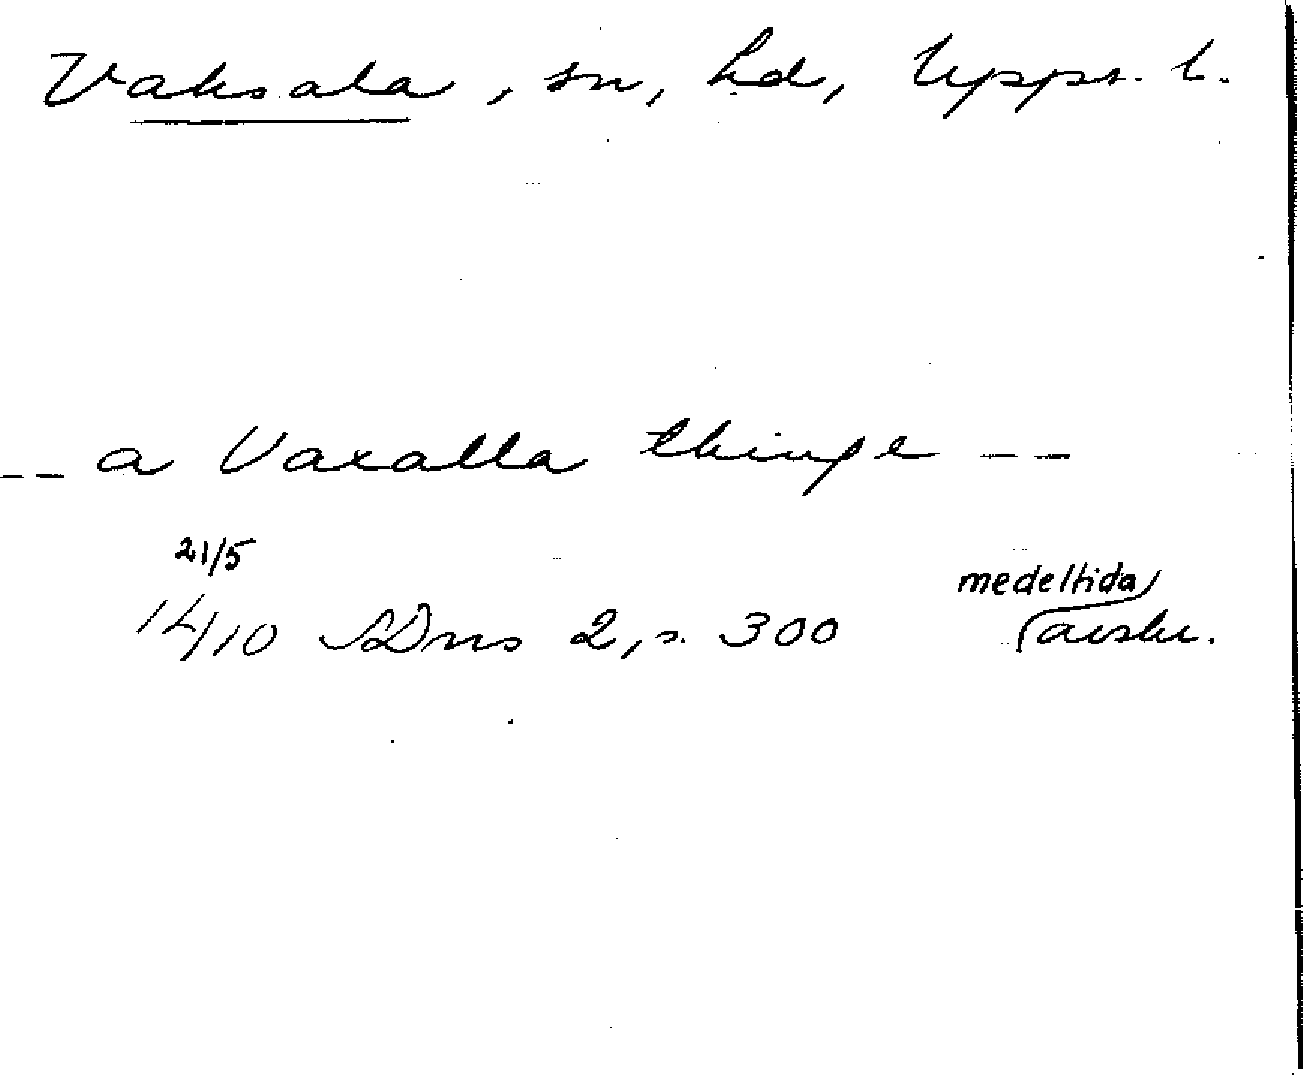 Vaksala, sn, hd, Upps. l.
-- a Vaxalla thinge --
21/5
1410 SDns 2, s. 300 medeltida avskr.